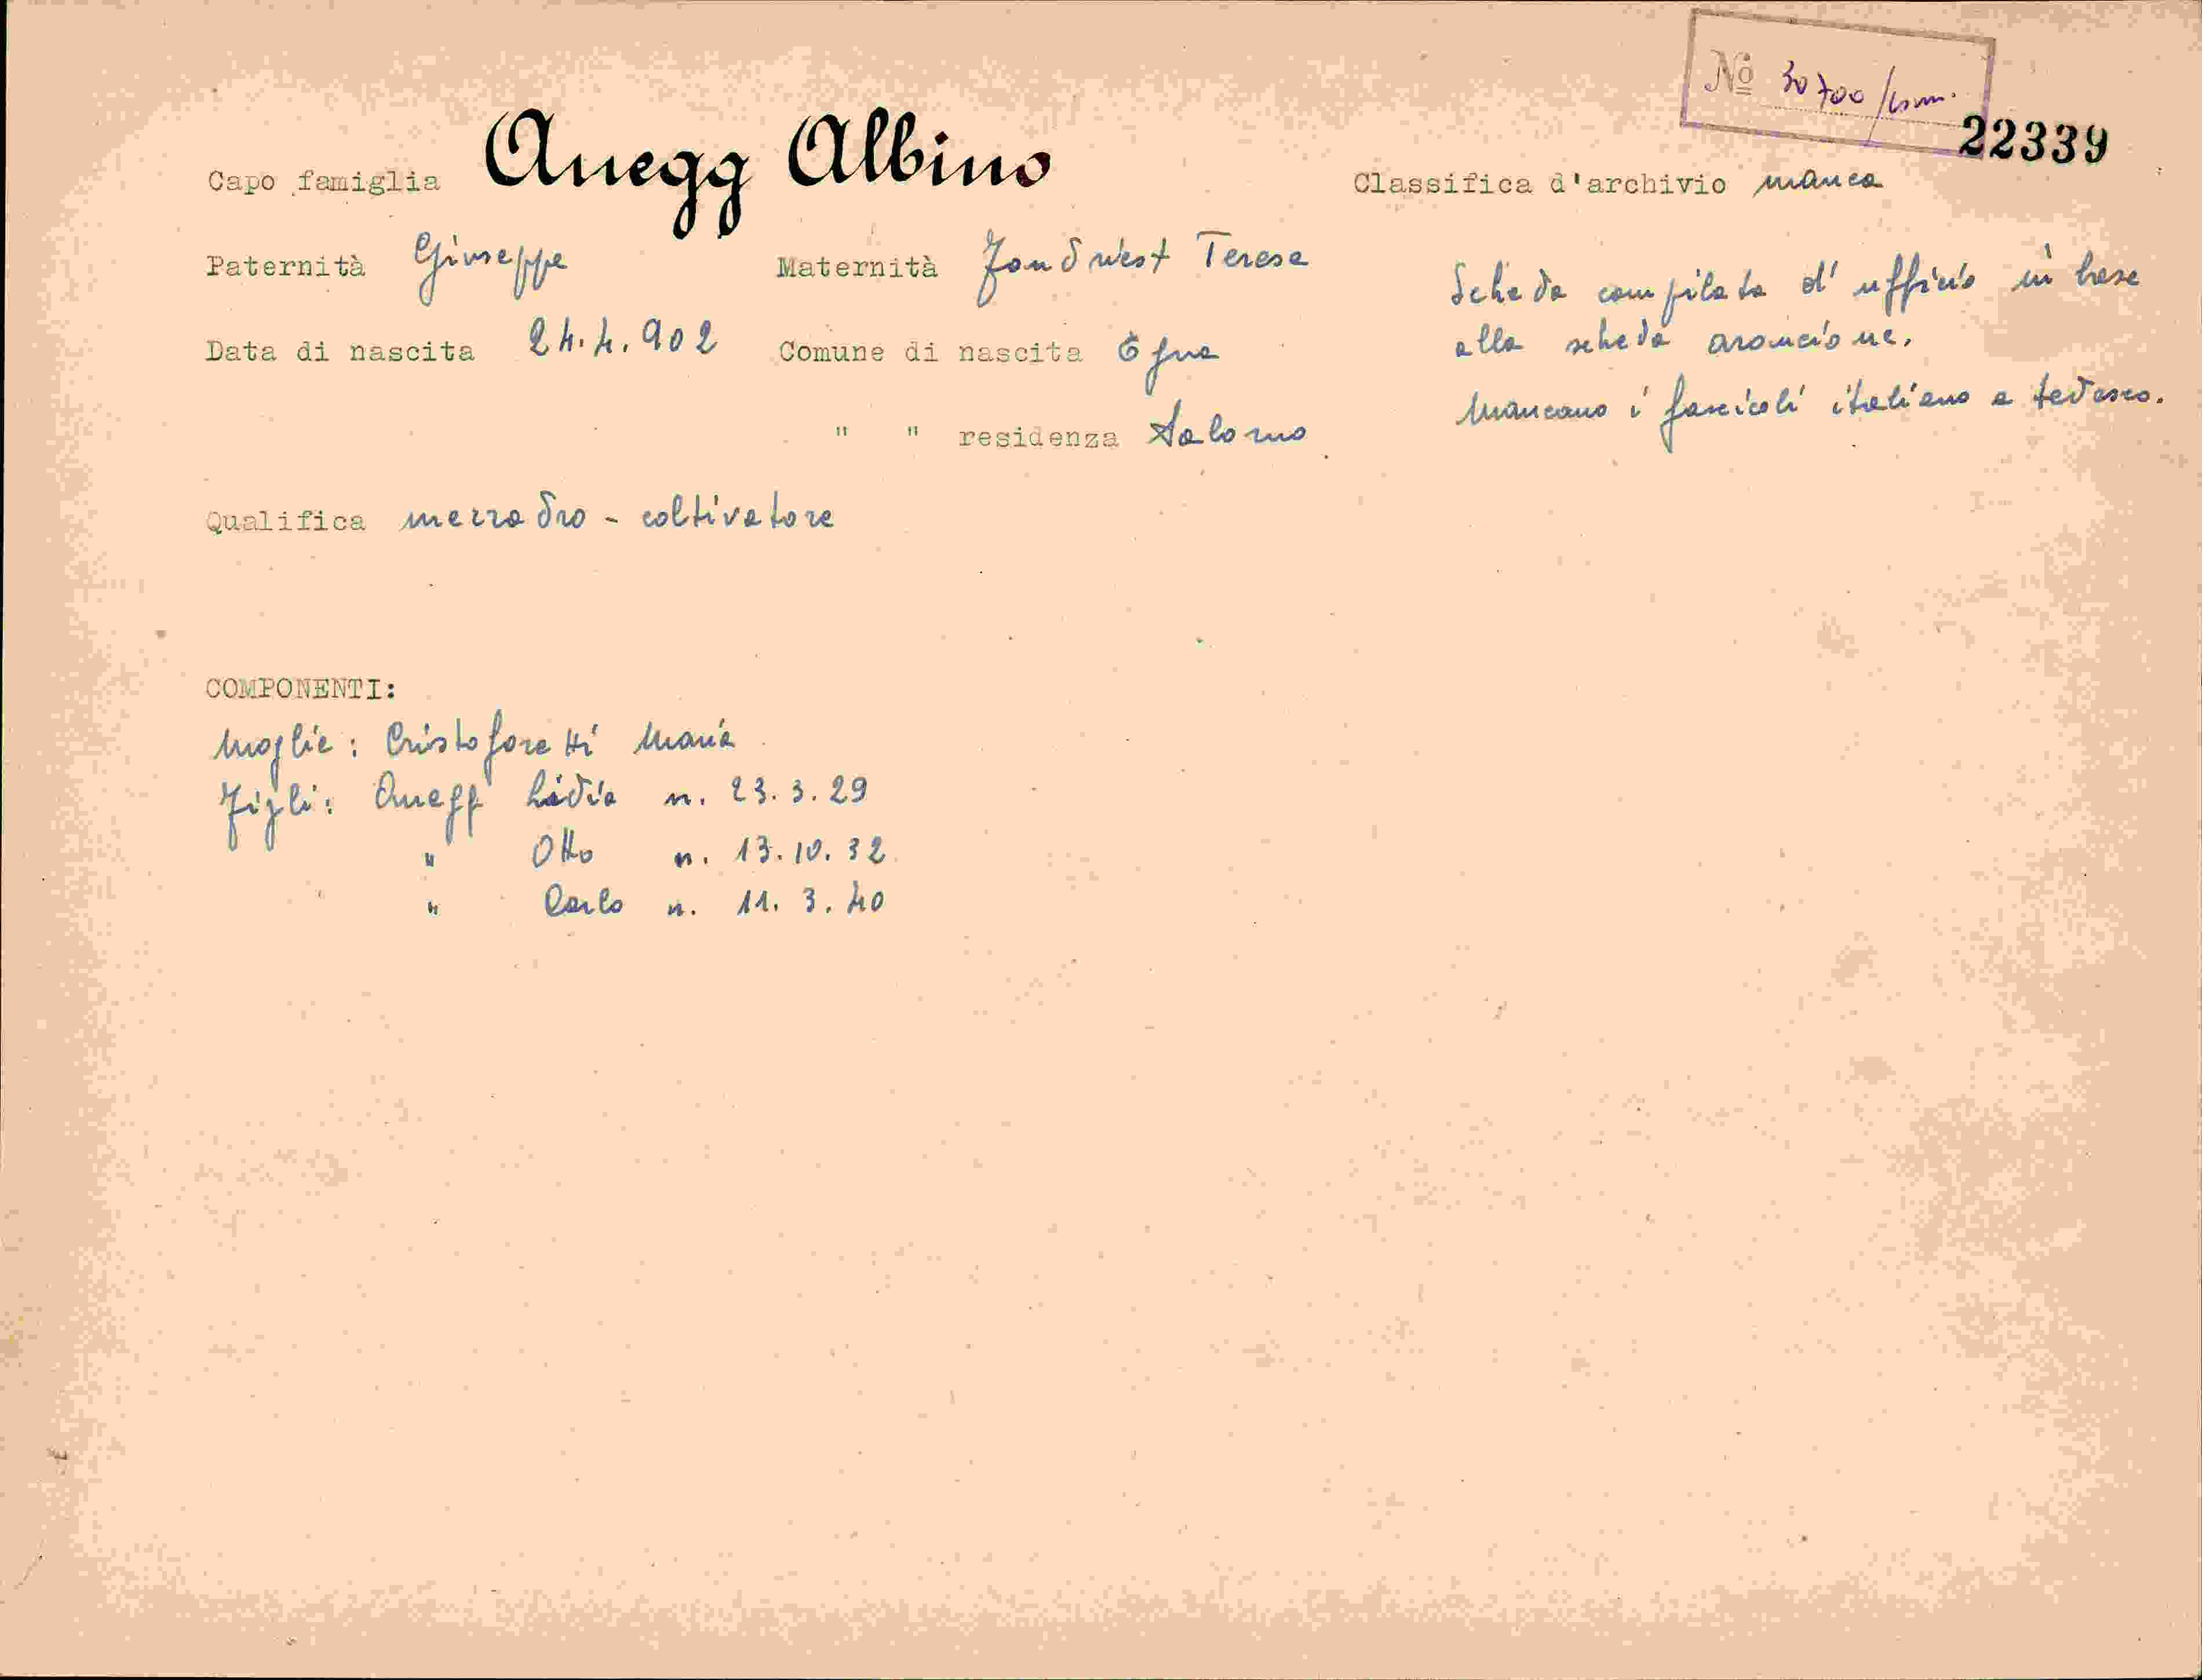 Nº 30700/
22339
Capo famiglia Anegg Albino
Classifica d'archivio manca
Paternità Giuseppe Maternità Fondriest Teresa
Data di nascita 24.4.902 Comune di nascita Egna
" " residenza Salorno
Scheda compilata d'ufficio in base
alla scheda arancione.
Mancano i fascicoli italiano e tedesco.
Qualifica mezzadro - coltivatore
COMPONENTI:
Moglie: Cristoforetti Maria
Figli: Anegg Lidia n. 23.3.29
" Otto n. 13.10.32
" Carlo n. 11.3.40